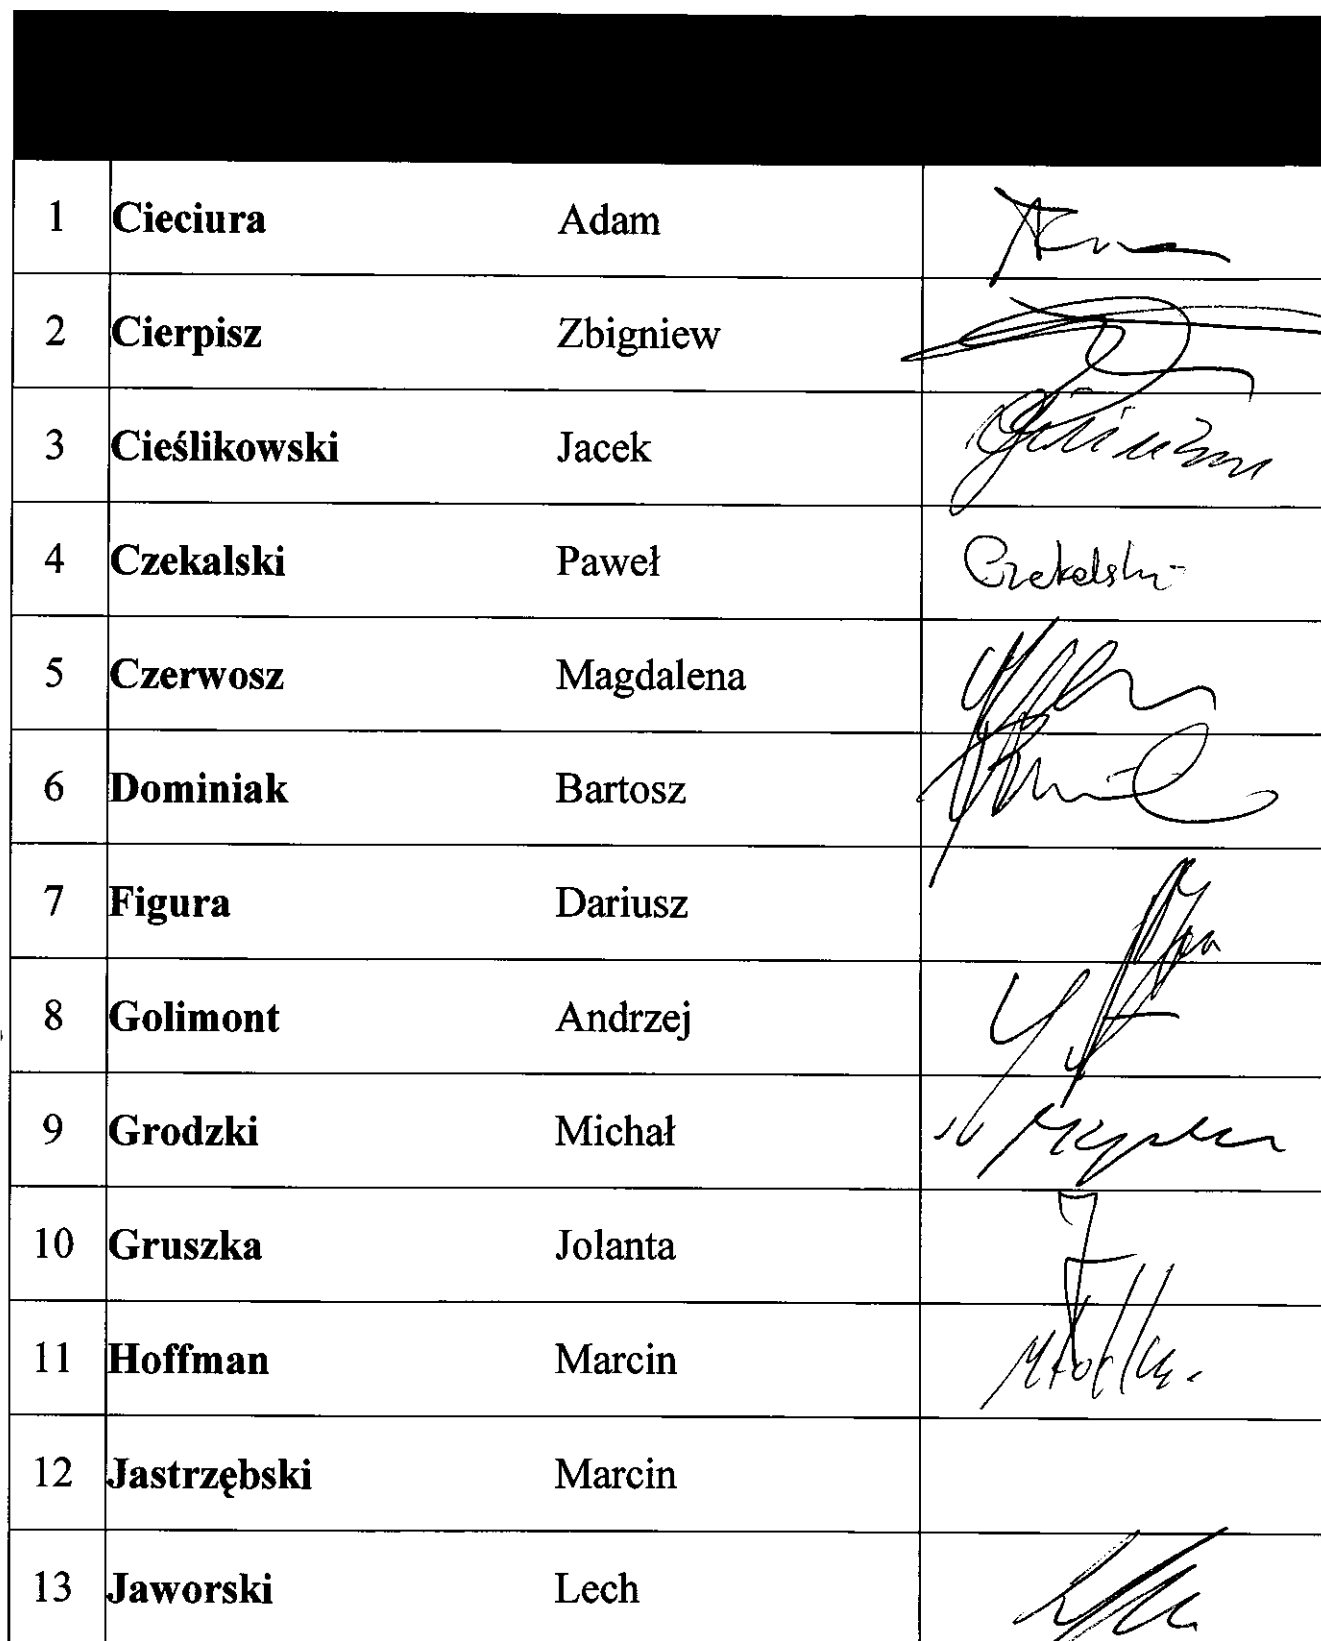 1 Cieciura Adam
2 Cierpisz Zbigniew
3 Cieślikowski Jacek
4 Czekalski Paweł Czekalski
5 Czerwosz Magdalena
6 Dominiak Bartosz
7 Figura Dariusz
8 Golimont Andrzej
9 Grodzki Michał
10 Gruszka Jolanta
11 Hoffman Marcin
12 Jastrzębski Marcin
13 Jaworski Lech